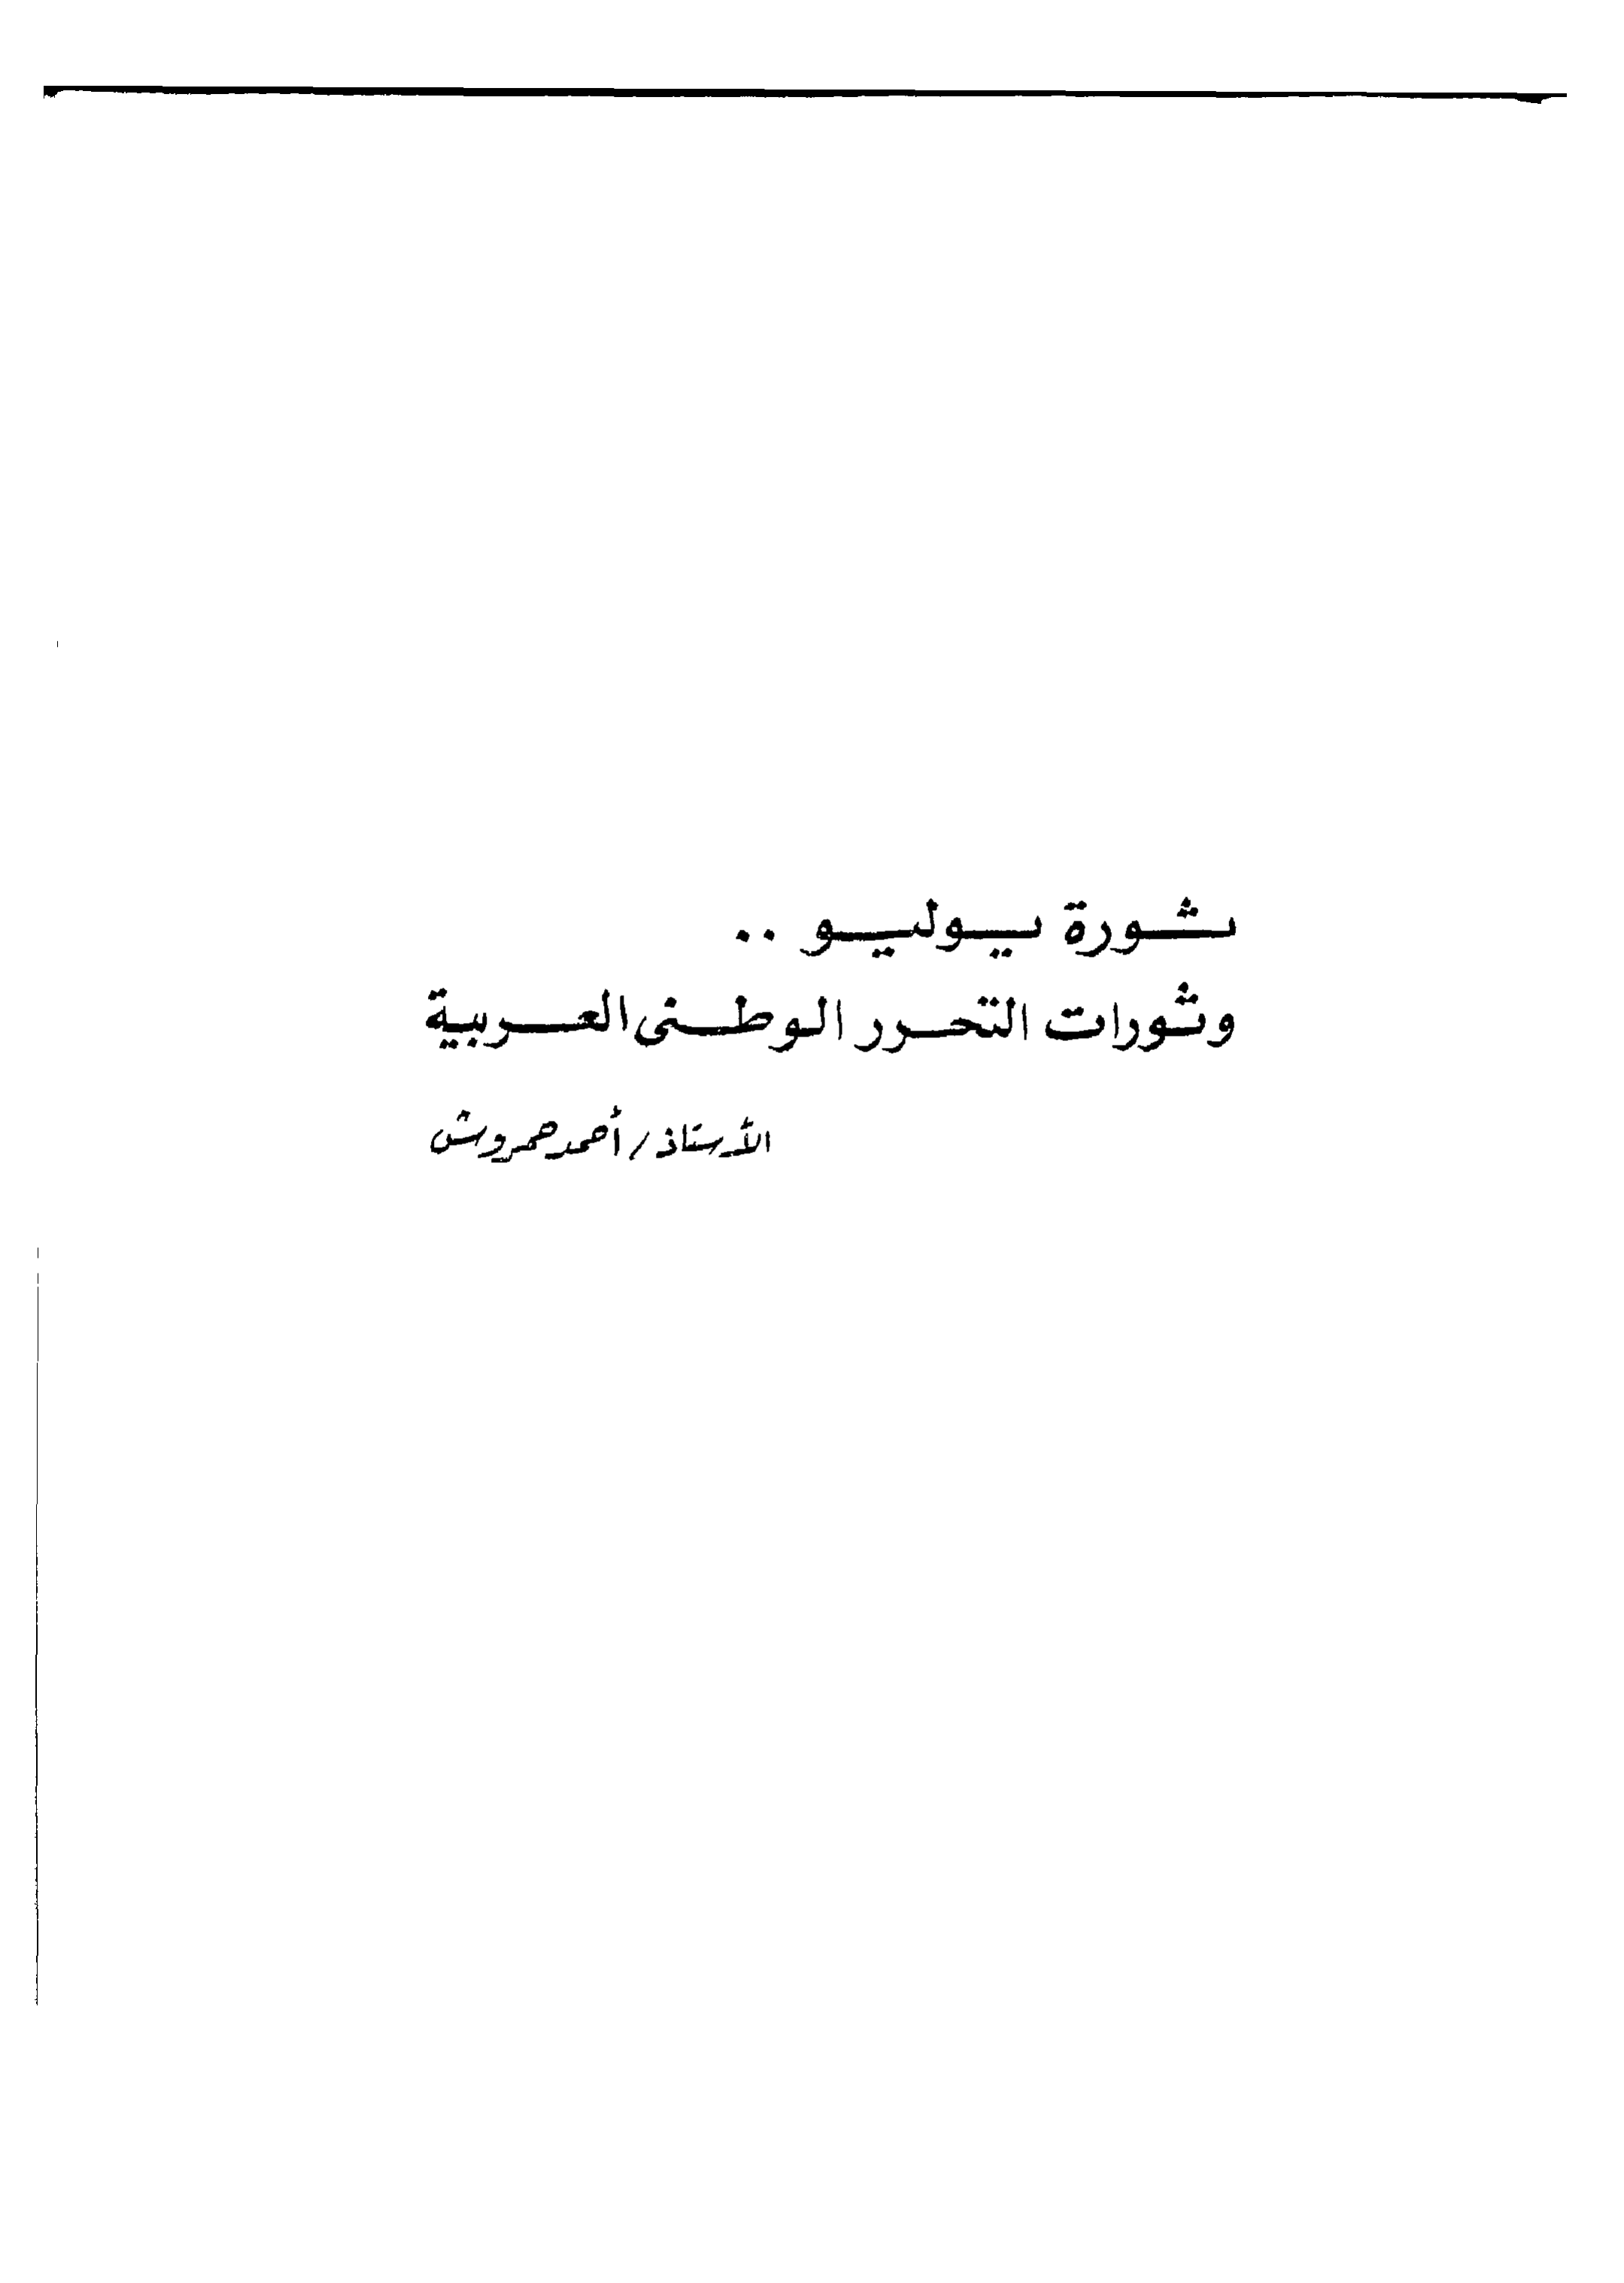 ثورة يوليو ..
وثورات التحرر الوطنى العربية
الأستاذ / أحمد حمروش